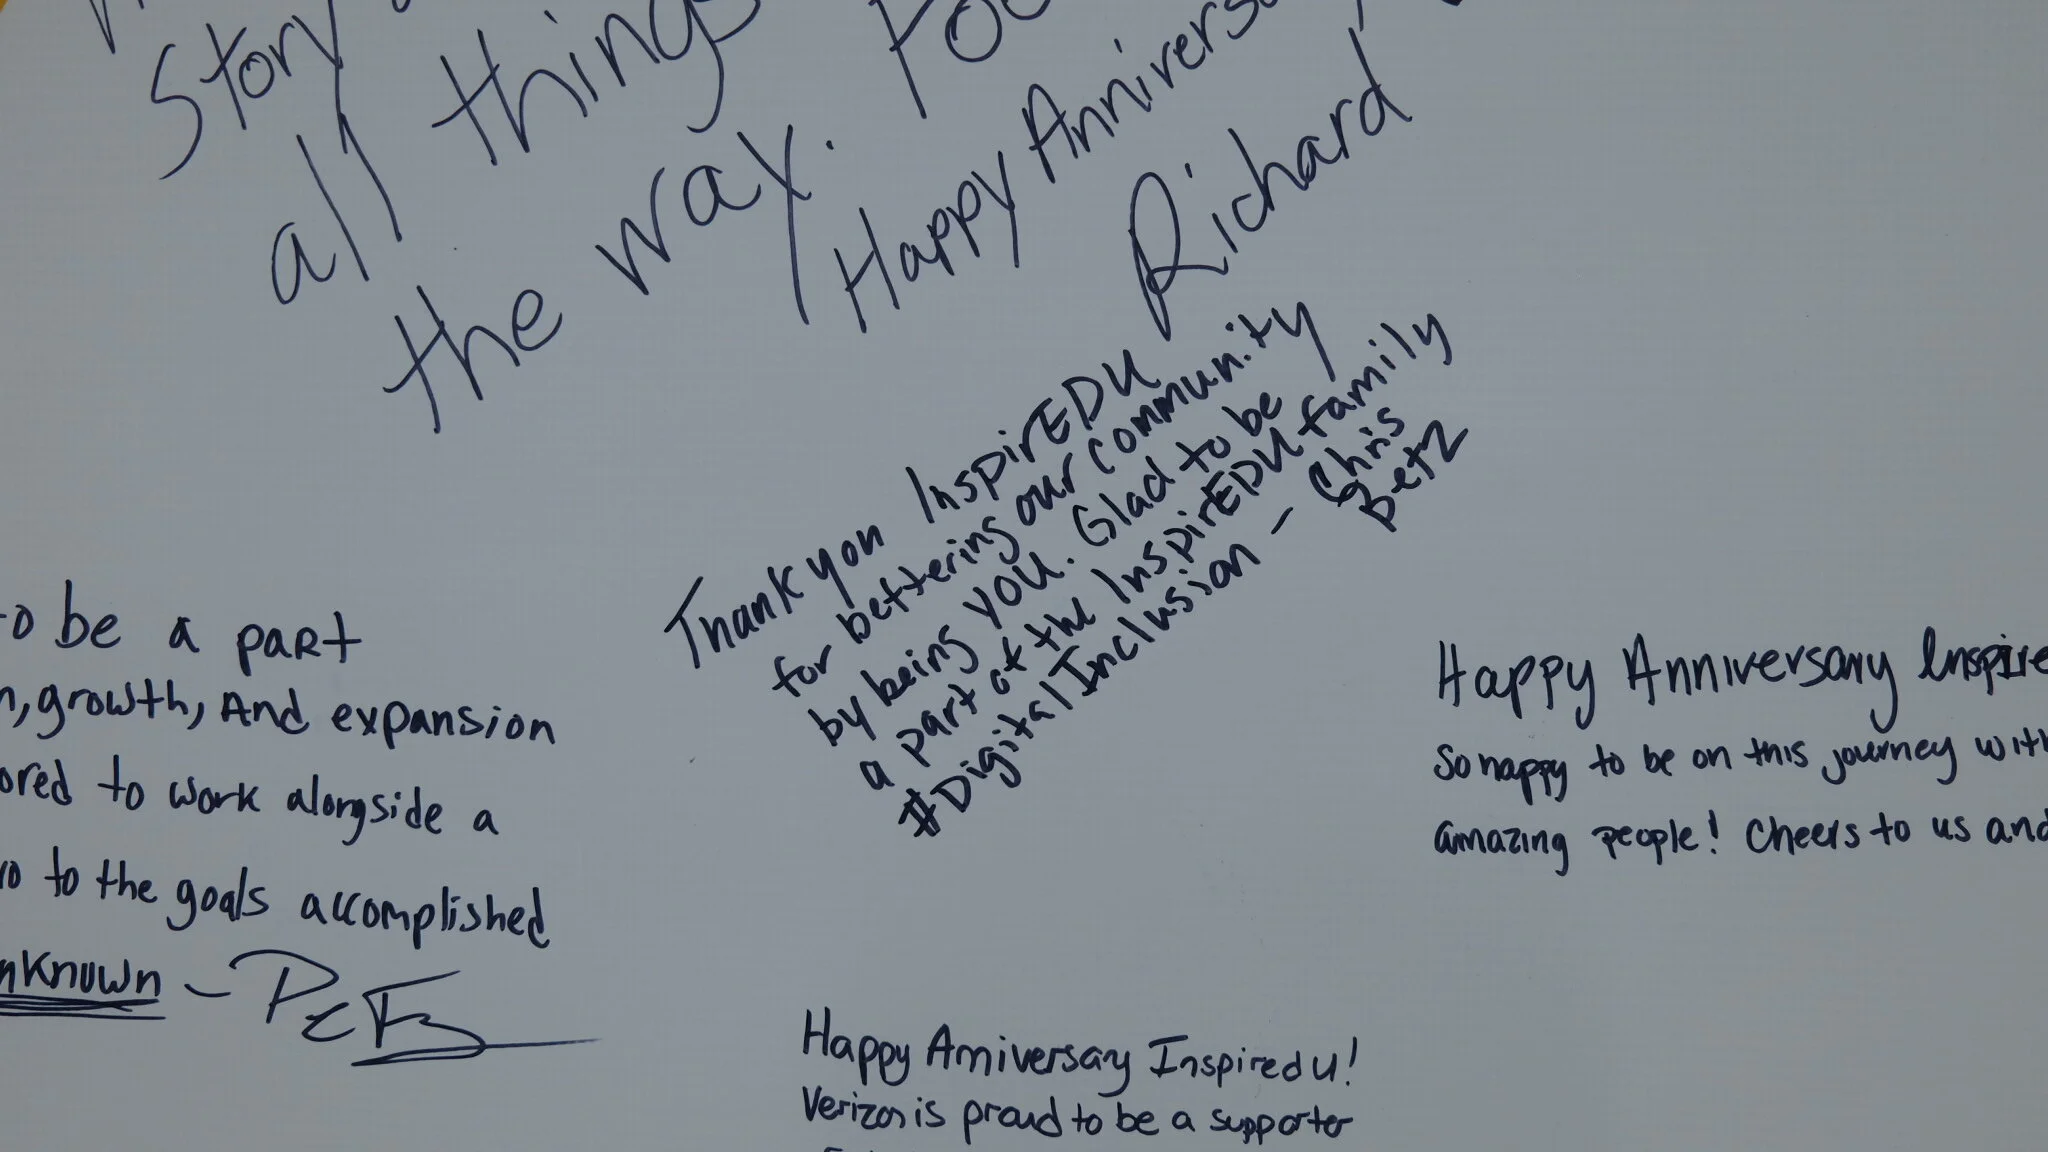 Story
all things
the way.
Happy Annivers
Richard
Thank you InspirEDU
for bettering our community
by being YOU. Glad to be
a part of the InspirEDU family
#DigitalInclusion - Chris
Betz
to be a part
growth, And expansion
ored to work alongside a
to the goals accomplished
nknown -
Happy Anniversary Inspire
So happy to be on this journey with
amazing people! Cheers to us and
Happy Anniversary InspiredU!
Verizon is proud to be a supporter